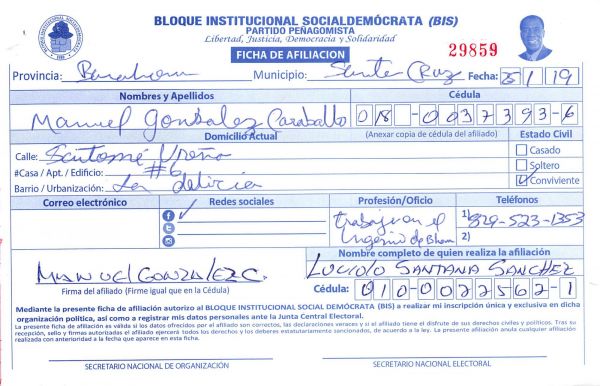 BLOQUE INSTITUCIONAL SOCIALDEMÓCRATA (BIS)
PARTIDO PEÑAGOMISTA
Libertad, Justicia, Democracia y Solidaridad
FICHA DE AFILIACION
29859
Provincia: Barahona Municipio: Santa Cruz Fecha: 25/1/19
Nombres y Apellidos Cédula
Manuel Gonzalez Caraballo 018-0037393-6
Domicilio Actual (Anexar copia de cédula del afiliado) Estado Civil
Calle: Santomé Ureña Casado
#Casa / Apt. / Edificio: #6 Soltero
Barrio / Urbanización: La delicia Conviviente
Correo electrónico Redes sociales Profesión/Oficio Teléfonos
trabaja en el 1) 829-523-1353
Ingenio de Bhona 2)
Nombre completo de quien realiza la afiliación
MANUEL GONZALEZ C. LUCIOLO SANTANA SANCHEZ
Firma del afiliado (Firme igual que en la Cédula) Cédula: 010-0022562-1
Mediante la presente ficha de afiliación autorizo al BLOQUE INSTITUCIONAL SOCIAL DEMÓCRATA (BIS) a realizar mi inscripción única y exclusiva en dicha
organización política, así como a registrar mis datos personales ante la Junta Central Electoral.
La presente ficha de afiliación es válida si los datos ofrecidos por el afiliado son correctos, las declaraciones veraces y si el afiliado tiene el disfrute de sus derechos civiles y políticos. Tras su
recepción, sello y firmas autorizadas el afiliado ejercerá todos los derechos y los deberes estatutariamente sancionados, de acuerdo a la ley. La presente afiliación anula cualquier afiliación
realizada con anterioridad a la fecha que aparece en esta ficha.
SECRETARIO NACIONAL DE ORGANIZACIÓN SECRETARIO NACIONAL ELECTORAL